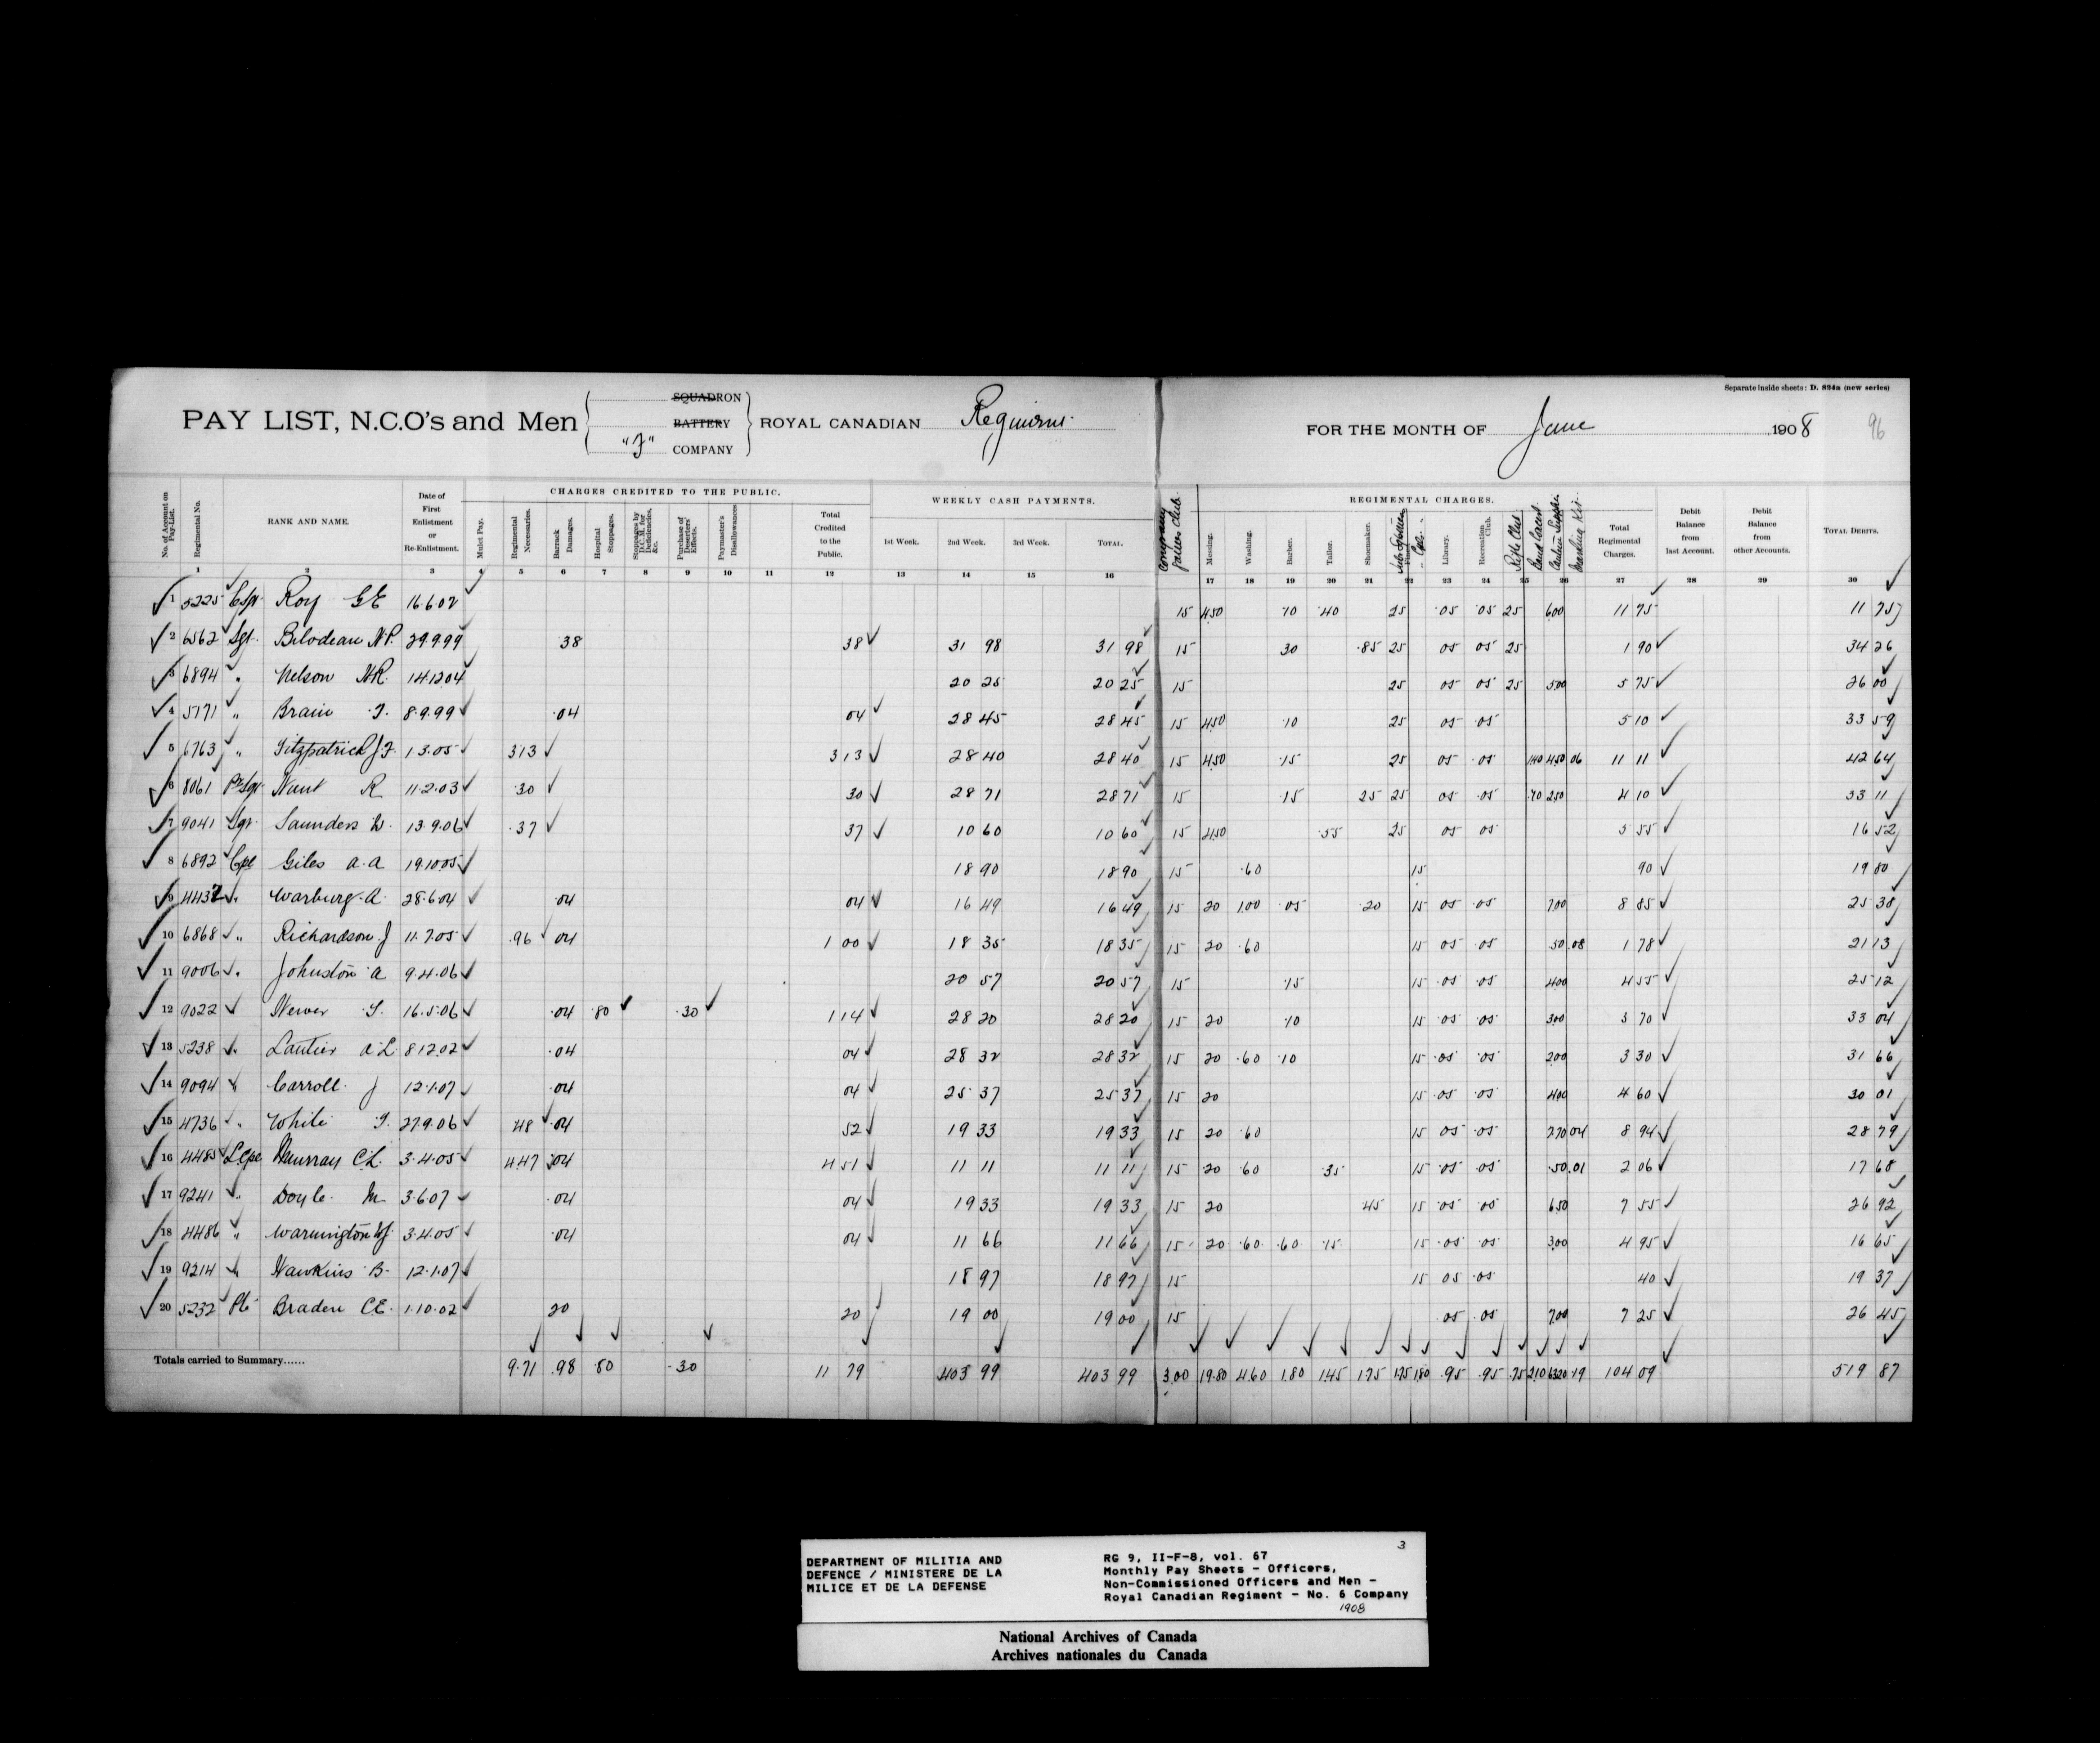 Separate inside sheets: D. 824a (new series)
PAY LIST, N.C.O's and Men SQUADRON BATTERY "J" COMPANY ROYAL CANADIAN Regiment FOR THE MONTH OF June 1908 96
CHARGES CREDITED TO THE PUBLIC. WEEKLY CASH PAYMENTS. REGIMENTAL CHARGES.
No. of Account on Pay-List. Regimental No. RANK AND NAME. Date of First Enlistment or Re-Enlistment. Mulct Pay. Regimental Necessaries. Barrack Damages. Hospital Stoppages. Stoppages by D.C.M. for Deficiencies, &c. Purchase of Deserters' Effects. Paymaster's Disallowances Total Credited to the Public. 1st Week. 2nd Week. 3rd Week. TOTAL. Messing. Washing. Barber. Tailor. Shoemaker. Library. Recreation Club. Rifle Club Marking Kit Total Regimental Charges. Debit Balance from last Account. Debit Balance from other Accounts. TOTAL DEBITS.
1 2 3 4 5 6 7 8 9 10 11 12 13 14 15 16 17 18 19 20 21 22 23 24 25 26 27 28 29 30
1 5225 Roy GE 16.6.02 15 4.50 10 .40 25 .05 .05 25 6.00 11 75 11 75
2 6562 Sgt. Bilodeau N.P. 29.9.99 38 38 31 98 31 98 15 30 .85 25 05 05 25 1 90 34 26
3 6894 " Nelson H.R. 14.12.04 20 25 20 25 15 25 05 05 25 5.00 5 75 26 00
4 5171 " Brain T. 8.9.99 .04 04 28 45 28 45 15 4.50 .10 25 05 .05 5 10 33 59
5 6763 " Fitzpatrick J.F. 1.3.05 3.13 3 13 28 40 28 40 15 4.50 .15 25 05 .05 1.40 4.50 06 11 11 42 64
6 8061 Pr Sgt Nant R 11.2.03 .30 30 28 71 28 71 15 .15 25 25 05 .05 .70 2.50 4 10 33 11
7 9041 Sgt. Saunders W. 13.9.06 .37 37 10 60 10 60 15 4.50 .55 25 05 05 5 55 16 52
8 6892 Cpl Giles A.A 19.10.05 18 90 18 90 15 .60 15 90 19 80
9 4432 " Warburg A. 28.6.04 .04 04 16 49 16 49 15 20 1.00 .05 .20 15 05 .05 7.00 8 85 25 38
10 6868 " Richardson J 11.7.05 .96 04 1 00 18 35 18 35 15 20 .60 15 05 .05 .50 .08 1 78 21 13
11 9006 " Johnston A 9.4.06 20 57 20 57 15 .15 15 .05 .05 4.00 4 55 25 12
12 9022 16.5.06 .04 .80 .30 1 14 28 20 28 20 15 20 .10 15 .05 .05 3.00 3 70 33 04
13 5238 " Lautier A.L. 8.12.02 .04 04 28 32 28 32 15 20 .60 .10 15 .05 .05 2.00 3 30 31 66
14 9094 " Carroll J 12.1.07 .04 04 25 37 25 37 15 20 15 .05 .05 4.00 4 60 30 01
15 4736 " White T. 27.9.06 .48 .04 52 19 33 19 33 15 20 .60 15 05 .05 7.70 04 8 94 28 79
16 4485 L Cpl Murray C.L. 3.4.05 4.47 .04 4 51 11 11 11 11 15 .20 .60 .35 15 .05 .05 .50 .01 2 06 17 68
17 9241 " Doyle M 3.6.07 .04 04 19 33 19 33 15 20 45 15 .05 .05 6.50 7 55 26 92
18 4486 " Warmington W.J. 3.4.05 .04 04 11 66 11 66 15 20 .60 .60 .15 15 .05 .05 3.00 4 95 16 65
19 9214 " Hawkins B. 12.1.07 18 97 18 97 15 15 05 .05 40 19 37
20 5232 Pte Braden C.E. 1.10.02 20 20 19 00 19 00 15 .05 .05 7.00 7 25 26 45
Totals carried to Summary...... 9.71 .98 .80 .30 11 79 403 99 403 99 3.00 19.80 4.60 1.80 1.45 1.75 1.75 1.80 .95 .95 .75 2.10 63.20 .19 104 09 519 87
3
DEPARTMENT OF MILITIA AND
DEFENCE / MINISTERE DE LA
MILICE ET DE LA DEFENSE
RG 9, II-F-8, vol. 67
Monthly Pay Sheets - Officers,
Non-Commissioned Officers and Men -
Royal Canadian Regiment - No. 6 Company
1908
National Archives of Canada
Archives nationales du Canada